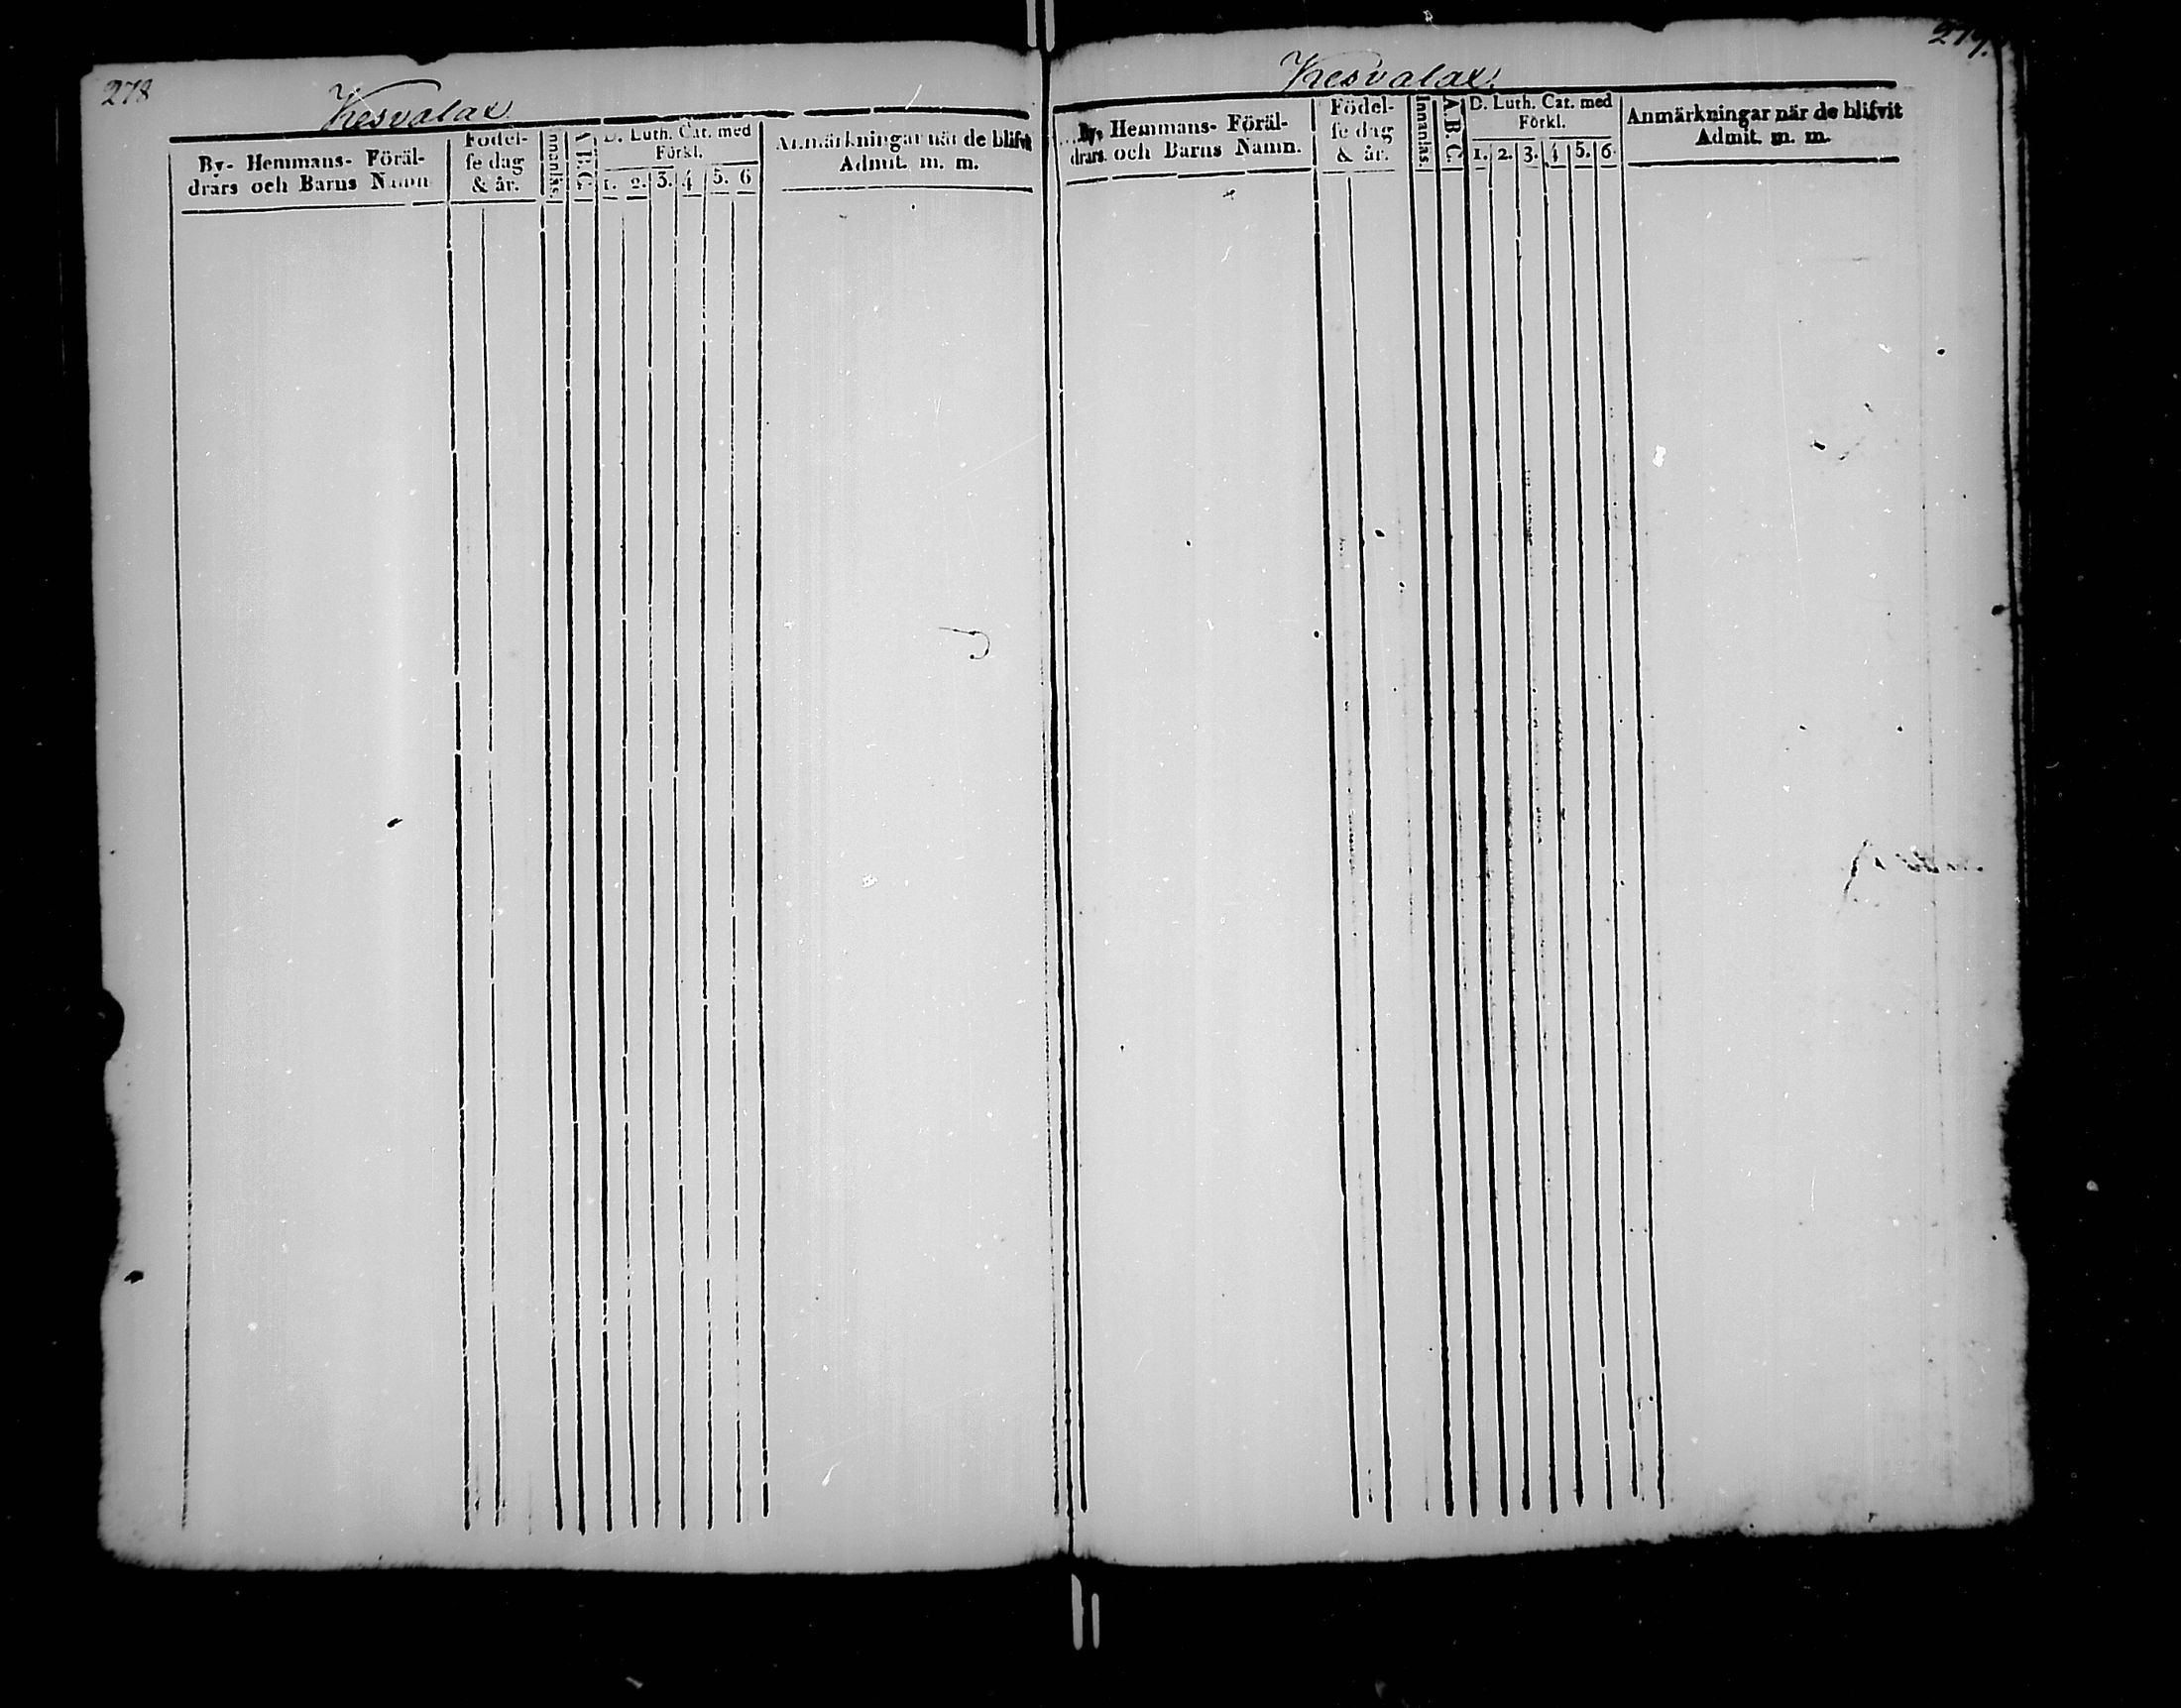 278
Kesvalax
By- Hemmans- Föräl-
drars och Barns Namn
Födel-
se dag
& år.
Innanläs.
A.B.C.
D. Luth. Cat. med
Förkl.
1. 2. 3. 4 5. 6
Anmärkningar när de blifvit
Admit. m. m.
279.
Kesvalax.
By- Hemmans- Föräl-
drars och Barns Namn.
Födel-
se dag
& år.
Innanläs.
A.B.C.
D. Luth. Cat. med
Förkl.
1. 2. 3. 4 5. 6.
Anmärkningar när de blifvit
Admit. m. m.